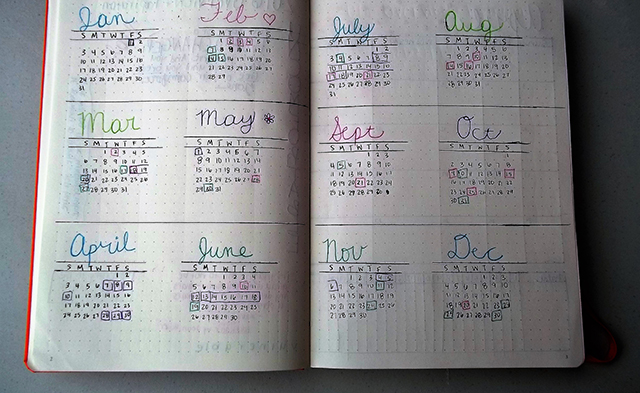 Jan
S M T W T F S
1 2
3 4 5 6 7 8 9
10 11 12 13 14 15 16
17 18 19 20 21 22 23
24 25 26 27 28 29 30
31
Feb
S M T W T F S
1 2 3 4 5 6
7 8 9 10 11 12 13
14 15 16 17 18 19 20
21 22 23 24 25 26 27
28 29
Mar
S M T W T F S
1 2 3 4 5
6 7 8 9 10 11 12
13 14 15 16 17 18 19
20 21 22 23 24 25 26
27 28 29 30 31
May
S M T W T F S
1 2 3 4 5 6 7
8 9 10 11 12 13 14
15 16 17 18 19 20 21
22 23 24 25 26 27 28
29 30 31
April
S M T W T F S
1 2
3 4 5 6 7 8 9
10 11 12 13 14 15 16
17 18 19 20 21 22 23
24 25 26 27 28 29 30
June
S M T W T F S
1 2 3 4
5 6 7 8 9 10 11
12 13 14 15 16 17 18
19 20 21 22 23 24 25
26 27 28 29 30
July
S M T W T F S
1 2
3 4 5 6 7 8 9
10 11 12 13 14 15 16
17 18 19 20 21 22 23
24 25 26 27 28 29 30
31
Aug
S M T W T F S
1 2 3 4 5 6
7 8 9 10 11 12 13
14 15 16 17 18 19 20
21 22 23 24 25 26 27
28 29 30 31
Sept
S M T W T F S
1 2 3
4 5 6 7 8 9 10
11 12 13 14 15 16 17
Oct
S M T W T F S
1
2 3 4 5 6 7 8
9 10 11 12 13 14 15
16 17 18 19 20 21 22
23 24 25 26 27 28 29
30 31
Nov
S M T W T F S
1 2 3 4 5
6 7 8 9 10 11 12
13 14 15 16 17 18 19
20 21 22 23 24 25 26
27 28 29 30
Dec
S M T W T F S
1 2 3
4 5 6 7 8 9 10
11 12 13 14 15 16 17
18 19 20 21 22 23 24
25 26 27 28 29 30 31